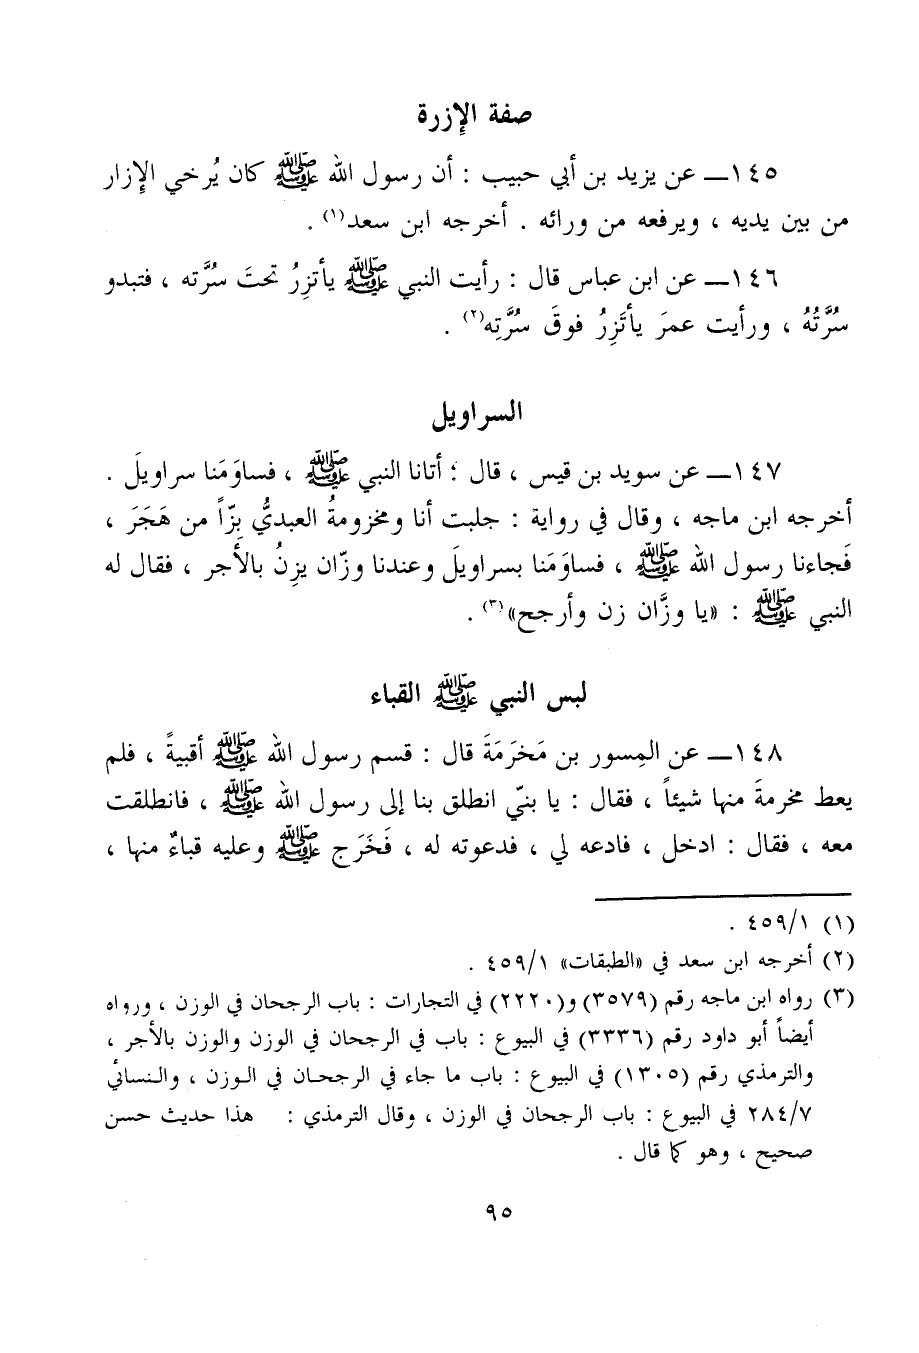 صفة الإزرة
١٤٥ــ عن يزيد بن أبي حبيب : أن رسول الله ﷺ كان يُرخي الإزار
من بين يديه ، ويرفعه من ورائه . أخرجه ابن سعد(١) .
١٤٦ــ عن ابن عباس قال : رأيت النبي ﷺ يأتزِرُ تحتَ سُرَّته ، فتبدو
سُرَّتُهُ ، ورأيت عمرَ يأتَزِرُ فوقَ سُرَّتِه(٢) .
السراويل
١٤٧ــ عن سويد بن قيس ، قال : أتانا النبي ﷺ ، فساوَمَنا سراويلَ .
أخرجه ابن ماجه ، وقال في رواية : جلبت أنا ومخزومةُ العبديُّ بزّاً من هَجَرَ ،
فَجاءنا رسول الله ﷺ ، فساوَمَنا بسراويلَ وعندنا وزّان يزِنُ بالأجر ، فقال له
النبي ﷺ : «يا وزَّان زن وأرجح»(٣) .
لبس النبي ﷺ القباء
١٤٨ــ عن المِسور بن مَخرَمَةَ قال : قسم رسول الله ﷺ أقبيةً ، فلم
يعط مخرمةَ منها شيئاً ، فقال : يا بنيّ انطلق بنا إلى رسول الله ﷺ ، فانطلقت
معه ، فقال : ادخل ، فادعه لي ، فدعوته له ، فَخَرَج ﷺ وعليه قباءٌ منها ،
(١) ٤٥٩/١ .
(٢) أخرجه ابن سعد في «الطبقات» ٤٥٩/١ .
(٣) رواه ابن ماجه رقم (٣٥٧٩) و(٢٢٢٠) في التجارات : باب الرجحان في الوزن ، ورواه
أيضاً أبو داود رقم (٣٣٣٦) في البيوع : باب في الرجحان في الوزن والوزن بالأجر ،
والترمذي رقم (١٣٠٥) في البيوع : باب ما جاء في الرجحان في الوزن ، والنسائي
٢٨٤/٧ في البيوع : باب الرجحان في الوزن ، وقال الترمذي : هذا حديث حسن
صحيح ، وهو كما قال .
٩٥